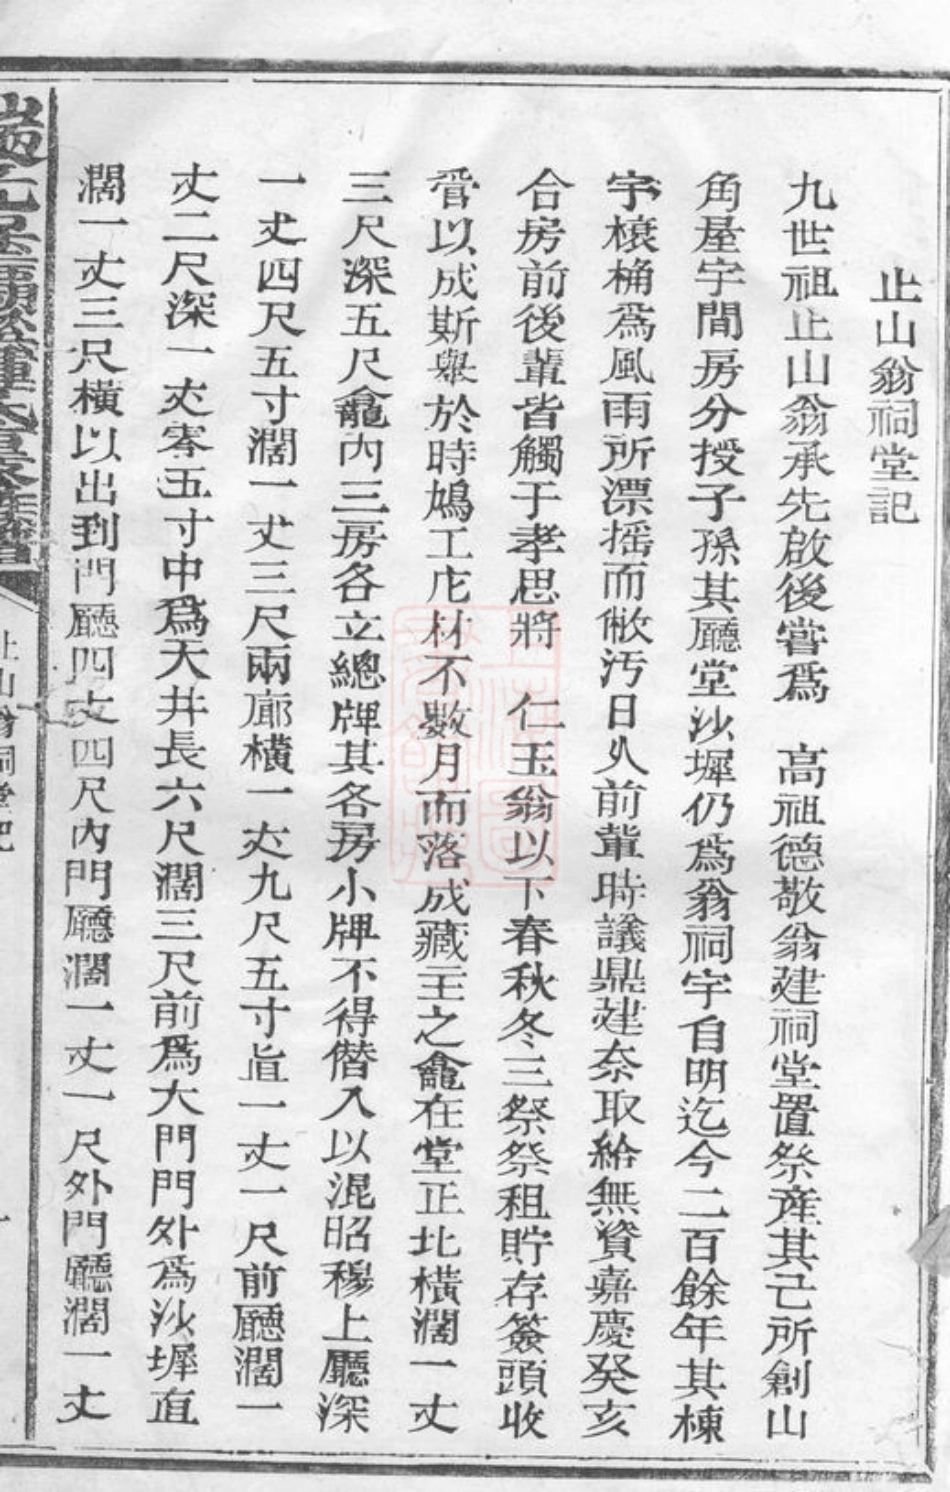 止山翁祠堂記
九世祖止山翁承先啟後嘗爲　高祖德敬翁建祠堂置祭產其己所創山
角屋宇間房分授子孫其廳堂沙墀仍爲翁祠宇自明迄今二百餘年其棟
宇榱桷爲風雨所漂搖而敝汚日久前輩時議鼎建奈取給無資嘉慶癸亥
合房前後輩皆觸于孝思將　仁玉翁以下春秋冬三祭祭租貯存簽頭收
管以成斯舉於時鳩工庀材不數月而落成藏主之龕在堂正北橫濶一丈
三尺深五尺龕內三房各立總牌其各房小牌不得僭入以混昭穆上廳深
一丈四尺五寸濶一丈三尺兩廊橫一丈九尺五寸直一丈一尺前廳濶一
丈二尺深一丈零五寸中爲天井長六尺濶三尺前爲大門門外爲沙墀直
濶一丈三尺橫以出到門廳四丈四尺內門廳濶一丈一尺外門廳濶一丈
止山翁祠堂記